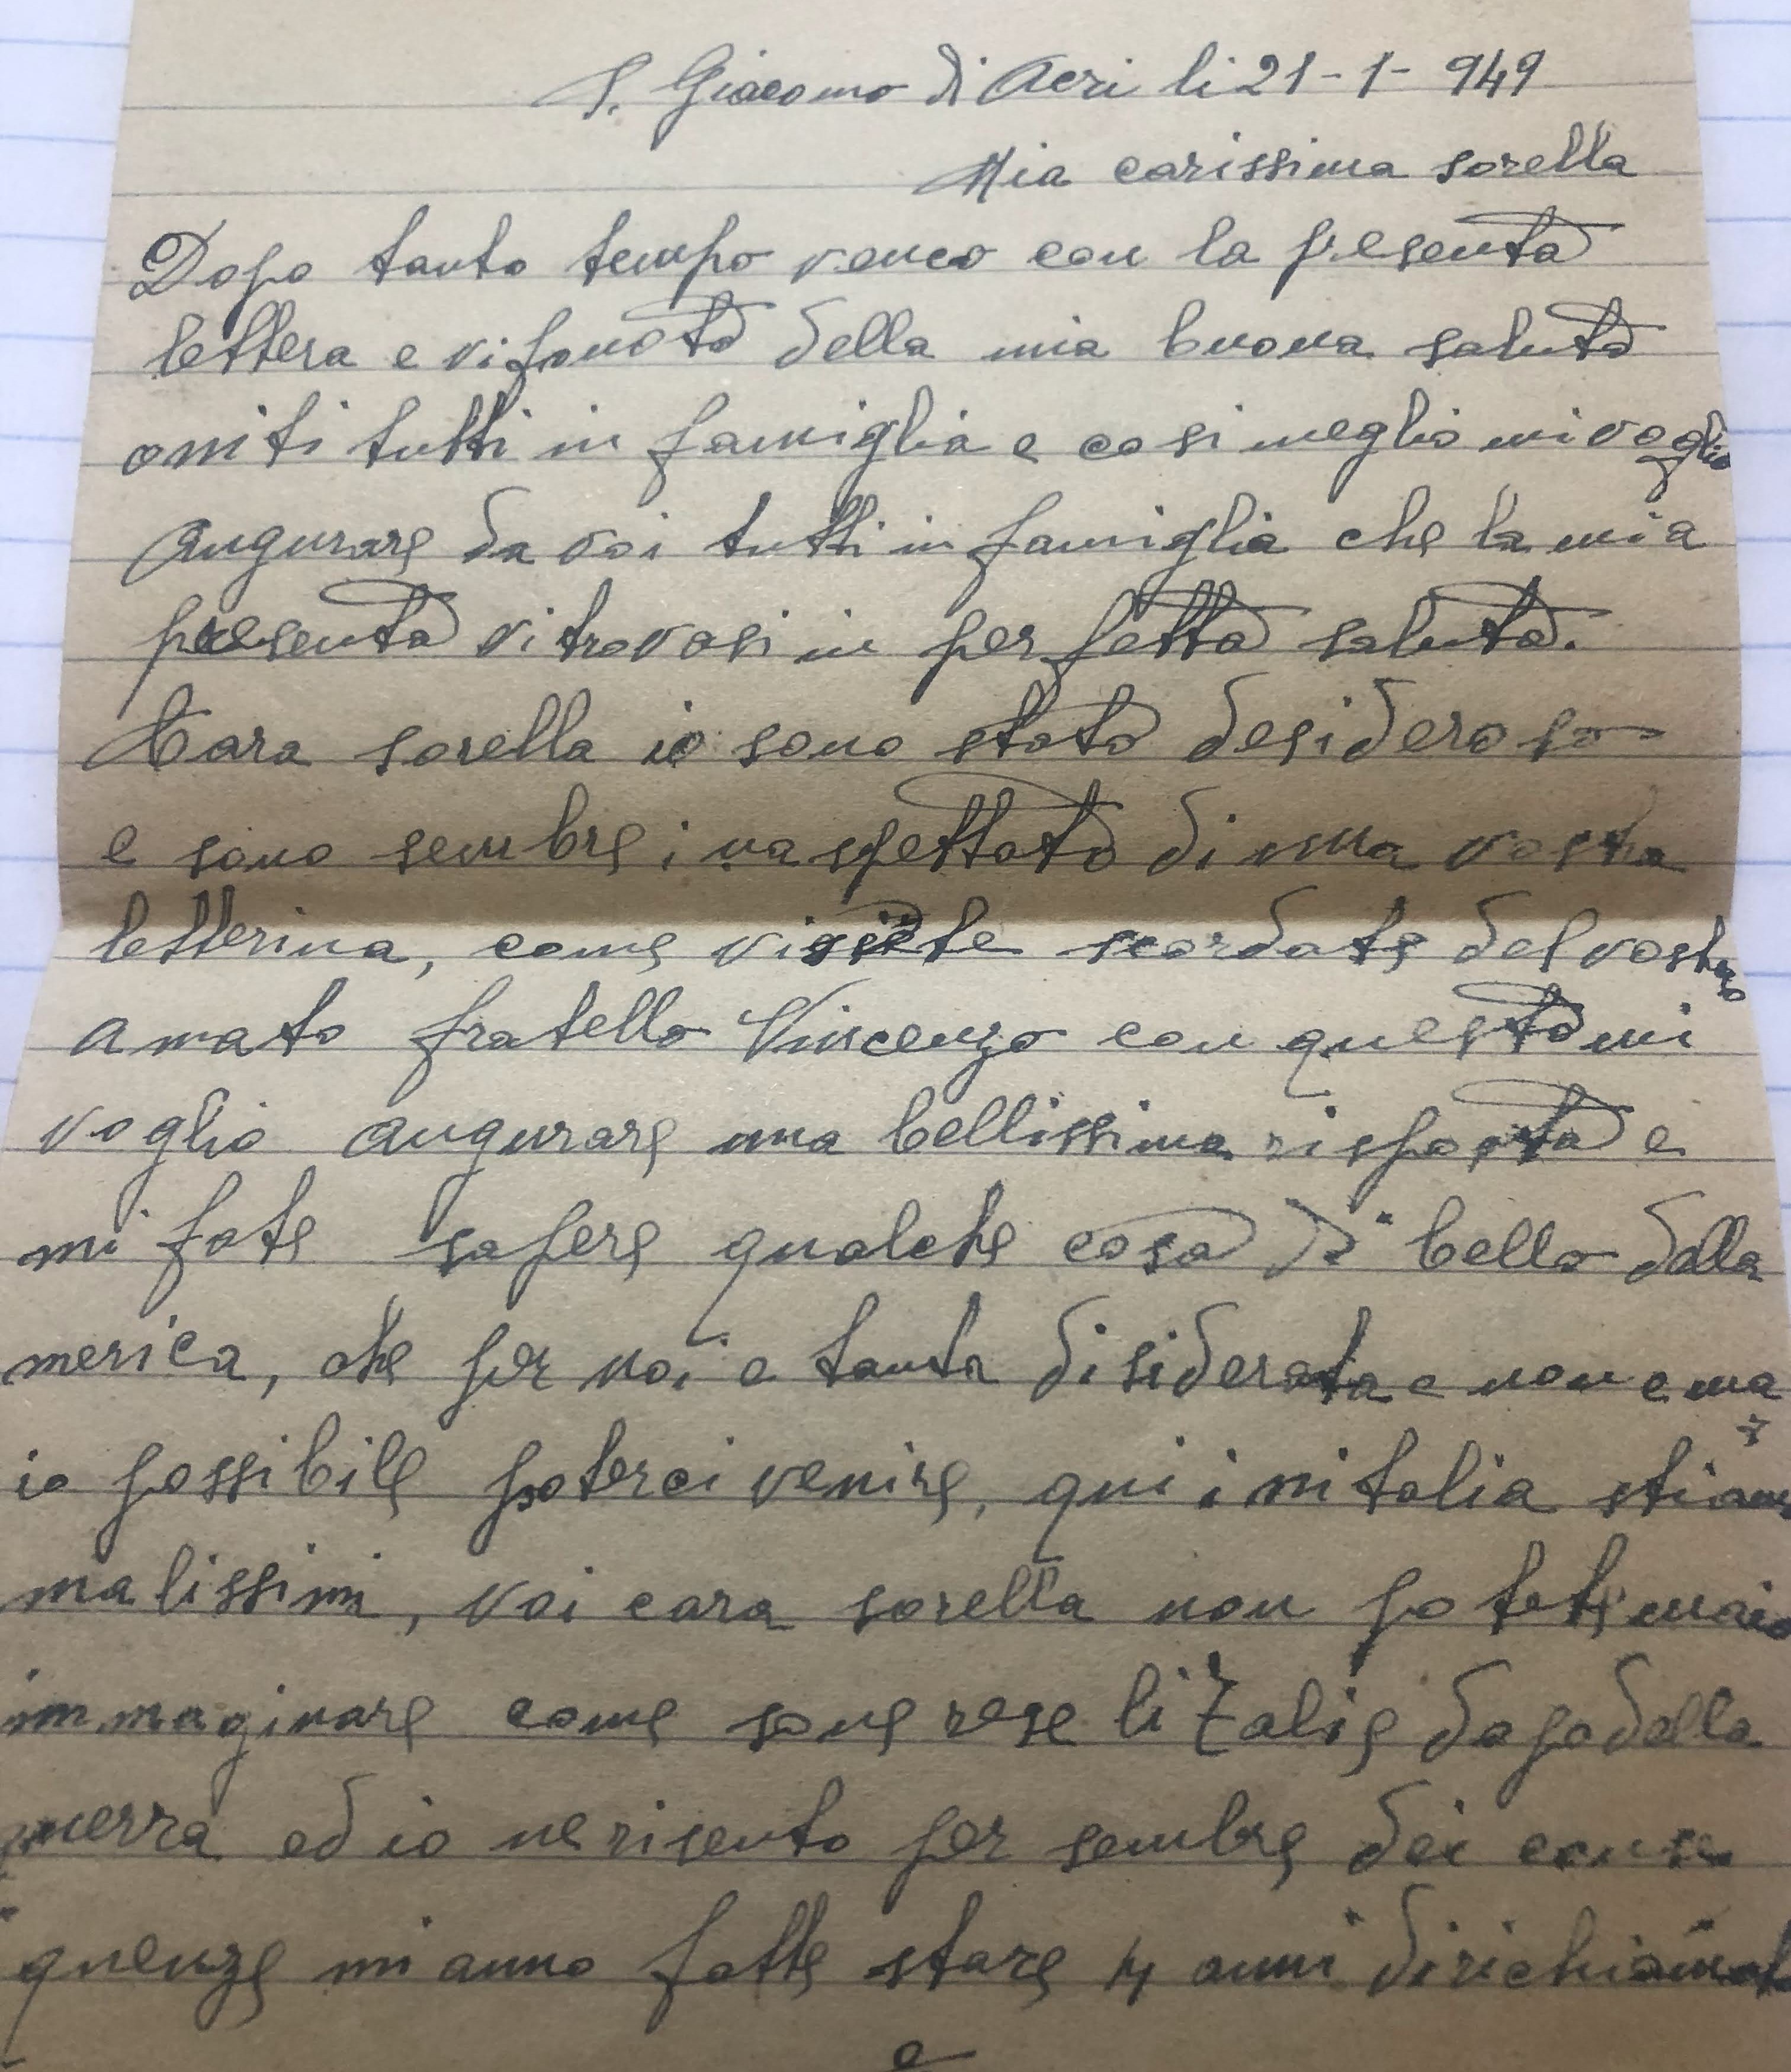 S. Giacomo di Acri li 21-1-949
Mia carissima sorella
Dopo tanto tempo venco con la presenta
lettera e vi fo noto della mia buona saluta
oniti tutti in famiglia e cosi meglio mi voglio
augurare da voi tutti in famiglia che la mia
presenta vi trovasi in perfetta saluta.
Cara sorella io sono stato desideroso
e sono sembre inaspettato di una vostra
letterina, come vi siete scordate del vostro
amato fratello Vincenzo con questo mi
voglio augurare una bellissima risposta e
mi fate sapere qualche cosa di bello della
merica, che per noi e tanta disiderata e non e ma
io possibile poterci venire, qui initalia stiamo
malissimi, voi cara sorella non potete maio
immaginare come sone rese litalie dopo della
guerra ed io ne risento per sembre dei conse
quenze mi anno fatte stare 4 anni di richiamat